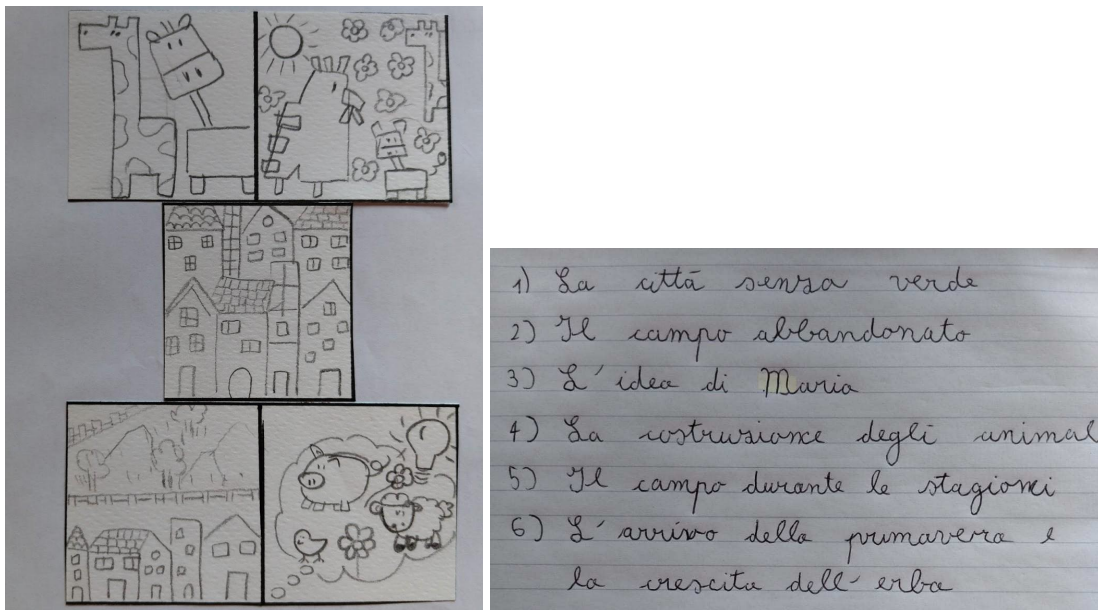 1) La città senza verde
2) Il campo abbandonato
3) L'idea di Maria
4) La costruzione degli animal
5) Il campo durante le stagioni
6) L'arrivo della primavera e
la crescita dell'erba